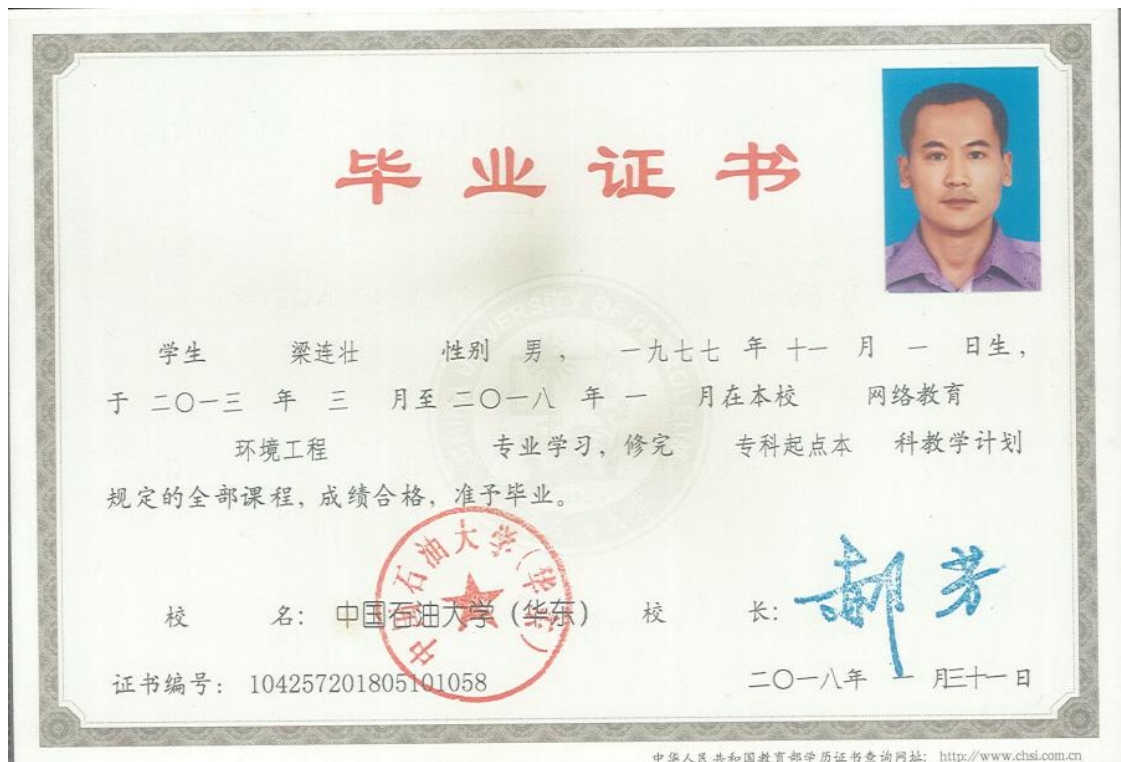 毕业证书
学生 梁连壮 性别 男， 一九七七 年 十一 月 一 日生，
于 二〇一三 年 三 月至 二〇一八 年 一 月在本校 网络教育
环境工程 专业学习，修完 专科起点本 科教学计划
规定的全部课程，成绩合格，准予毕业。
校 名： 中国石油大学（华东） 校 长： 郝芳
证书编号： 104257201805101058 二〇一八年 一 月三十一日
中国石油大学（华东）
中华人民共和国教育部学历证书查询网址： http://www.chsi.com.cn